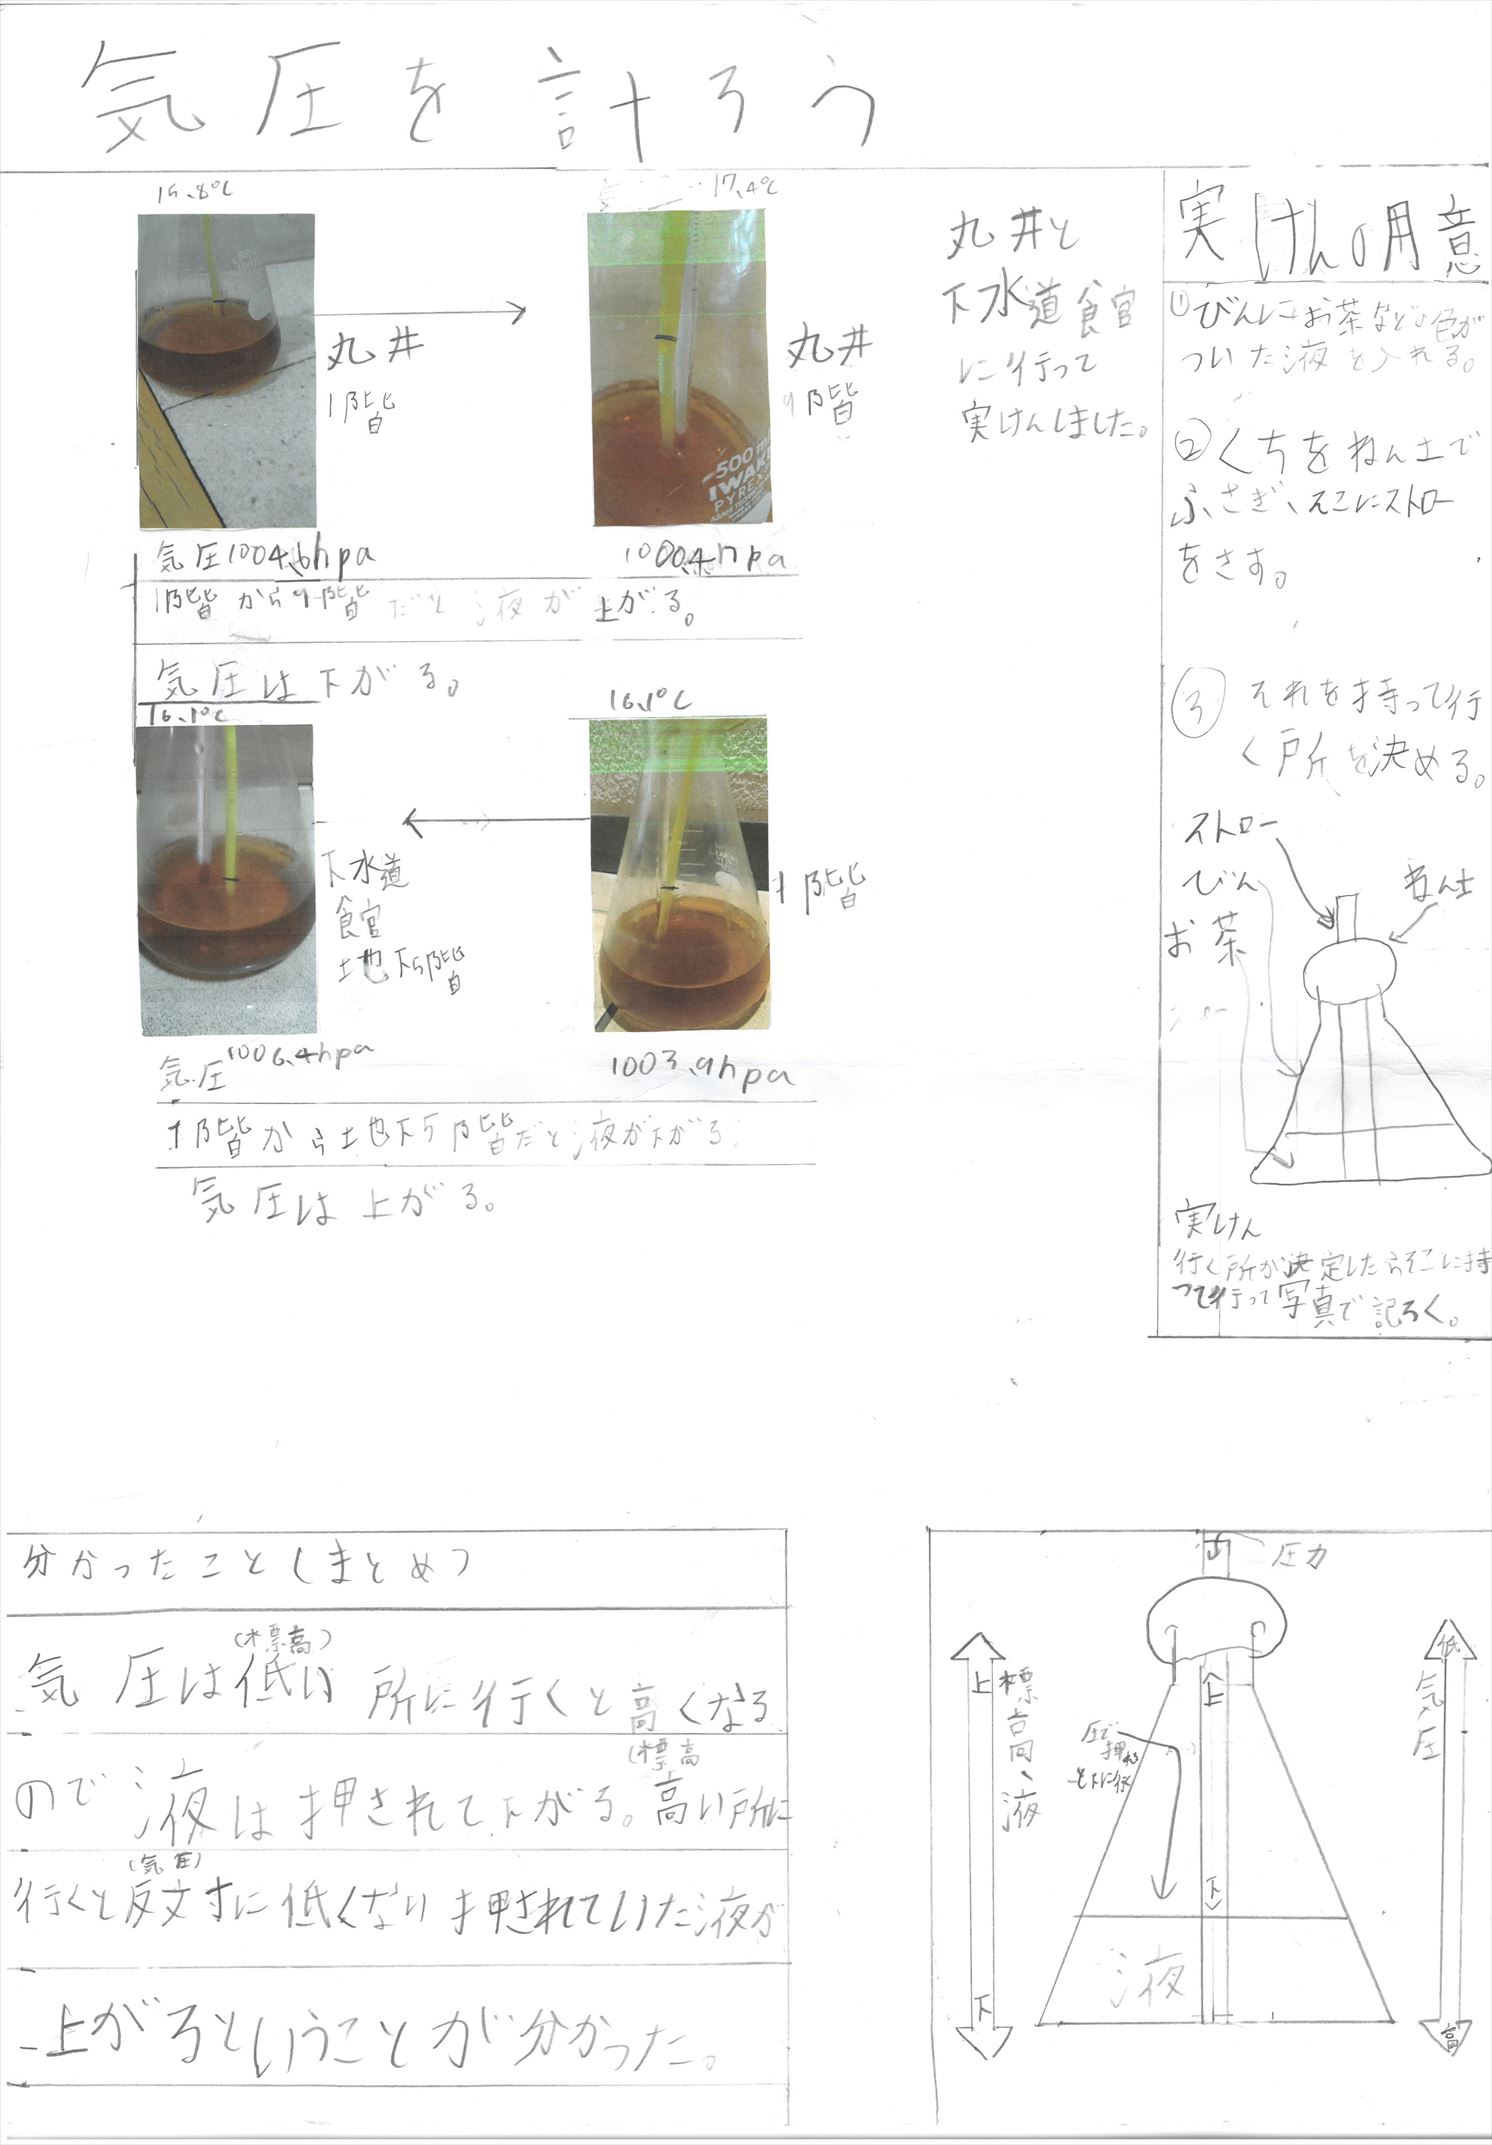 気圧を計ろう
15.8℃
17.4℃
丸井
1階
丸井
9階
気圧1004.6hpa
1000.4hpa
1階から9階だと液が上がる。
気圧は下がる。
16.1℃
16.1℃
下水道
食官
土地下5階
1階
気圧1006.4hpa
1003.9hpa
1階から土地下5階だと液が下がる。
気圧は上がる。
丸井と
下水道食官
に行って
実けんしました。
500 ml
IWAKI
PYREX
実けんの用意
①びんにお茶などの色が
ついた液を入れる。
②くちをねん土で
ふさぎ、そこにストロー
をさす。
③それを持って行
く所を決める。
ストロー
びん
お茶
ねん土
実けん
行く所が決定したらそこに持
って行って写真で記ろく。
分かったこと(まとめ)
(標高)
気圧は低い所に行くと高くなる
(標高
ので液は押されて下がる。高い所に
(気圧)
行くと反対に低くなり押されていた液が
上がるということが分かった。
圧力
上
標高、液
下
上
圧で
押され
と下に行く
下
液
低
気圧
高